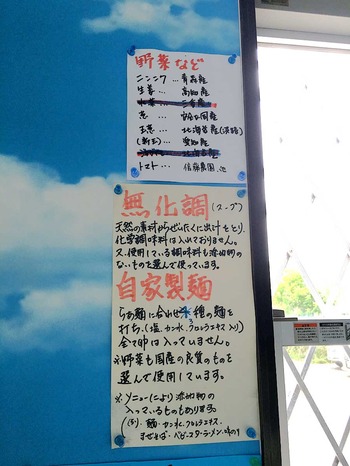 野菜など
ニンニク… 青森産
生姜 … 高知産
葱 … 国産
玉葱 … 北海道産(淡路)
(新玉) … 愛知産
トマト … 佐藤農園.他
無化調(スープ)
天然の素材からぜいたくに出汁をとり、
化学調味料は入れておりません。
又、使用している調味料も添加物の
ないものを選んで使っています。
自家製麺
らぁ麺に合わせ 種の麺を
打ち、(塩、カン水、クロレラエキス入り)
全て卵は入っていません。
※野菜も国産の良質のものを
選んで使用しています。
※、メニューにより添加物の
入っているものもあります。
麺・カン水、クロレラエキス、
まぜそば・ベビースターラーメン、味のり